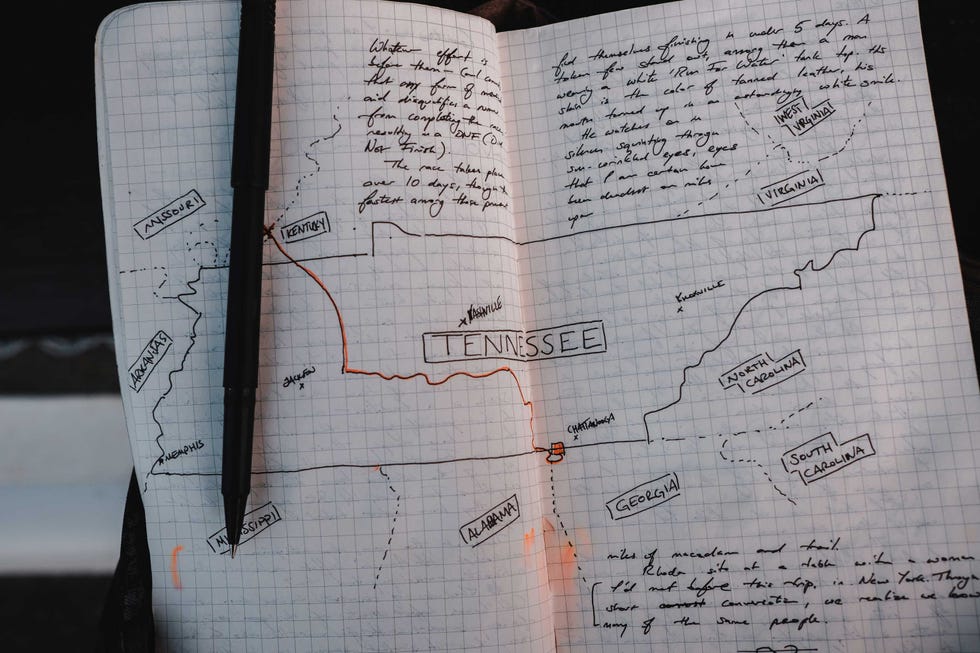 Whatever effort is
before them
that any form of
aid disqualifies a
from completing the race
resulting in a DNF (Did
Not Finish).
The race takes place
over 10 days, though
fastest among those
find themselves finishing in under 5 days. A
few stand out, among them a man
wearing a white 'Run For Water' tank top. His
skin is the color of tanned leather, his
mouth turned up in an astoundingly white smile.
He watches on in
silence, squinting through
sun-wrinkled eyes, eyes
that I am certain have
been on miles
upon
WEST VIRGINIA
VIRGINIA
MISSOURI
KENTUCKY
NASHVILLE
KNOXVILLE
TENNESSEE
ARKANSAS
JACKSON
NORTH CAROLINA
CHATTANOOGA
MEMPHIS
SOUTH CAROLINA
GEORGIA
ALABAMA
miles of macadam and trail.
Rhoda sits at a table with a woman
I'd met before this trip, in New York. Through
short conversation, we realize we know
many of the same people.